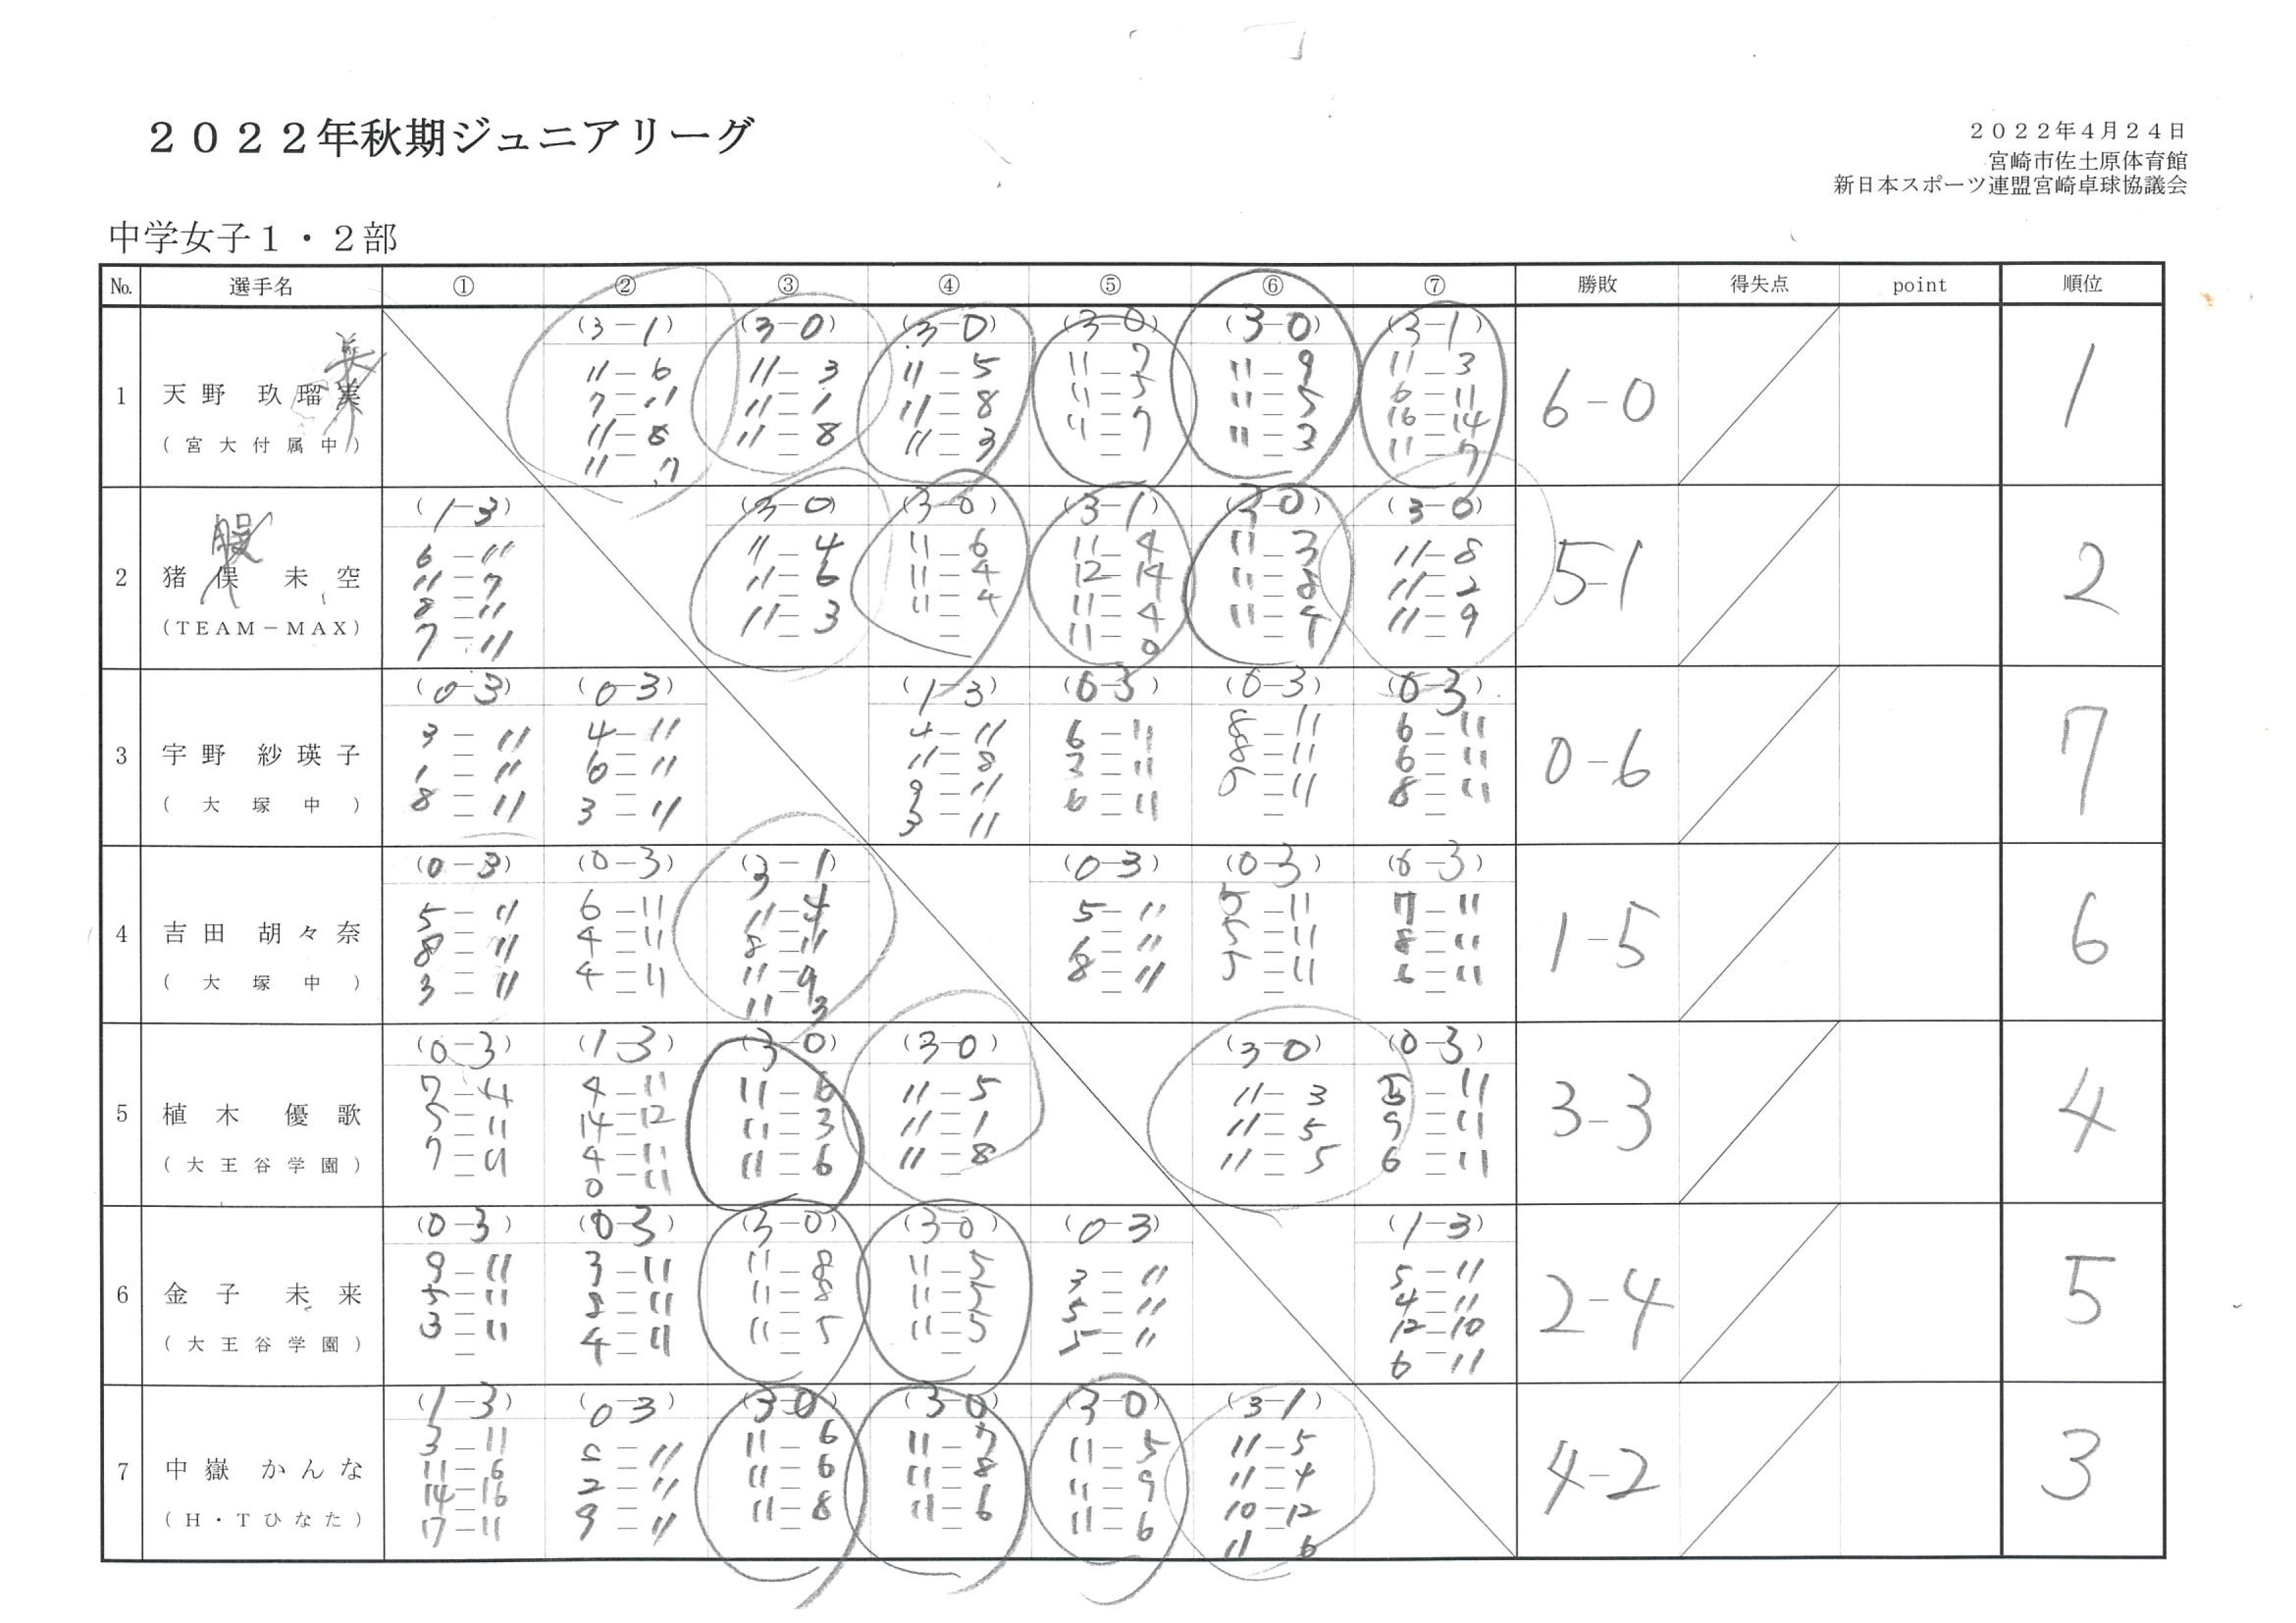 2022年秋期ジュニアリーグ
2022年4月24日
宮崎市佐土原体育館
新日本スポーツ連盟宮崎卓球協議会
中学女子1・2部
No. 選手名 ① ② ③ ④ ⑤ ⑥ ⑦ 勝敗 得失点 point 順位
(3-1) (3-0) (3-0) (3-0) (3-0) (3-1)
11-6 11-3 11-5 11-7 11-9 11-3
1 天野 玖瑠美 7-11 11-1 11-8 11-5 11-5 6-11 6-0 1
11-8 11-8 11-3 11-7 11-3 16-14
(宮大付属中) 11 7 11-7
(1-3) (3-0) (3-0) (3-1) (3-0) (3-0)
股
6-11 11-4 11-6 11-4 11-3 11-8
2 猪俣 未空 11-7 11-6 11-4 12-14 11-8 11-2 5-1 2
8-11 11-3 11-4 11-4 11-4 11-9
(TEAM-MAX) 7-11 11-0
(0-3) (0-3) (1-3) (0-3) (0-3) (0-3)
3-11 4-11 4-11 6-11 8-11 6-11
3 宇野 紗瑛子 1-11 6-11 11-8 3-11 8-11 6-11 0-6 7
8-11 3-11 9-11 6-11 -11 8-11
(大塚中) 3-11
(0-3) (0-3) (3-1) (0-3) (0-3) (0-3)
5-11 6-11 11-4 5-11 5-11 7-11
4 吉田 胡々奈 8-11 4-11 8-11 1-11 5-11 8-11 1-5 6
3-11 4-11 11-9 8-11 5-11 6-11
(大塚中) 11 3
(0-3) (1-3) (3-0) (3-0) (3-0) (0-3)
7-11 4-11 11-6 11-5 11-3 5-11
5 植木 優歌 5-11 14-12 11-3 11-1 11-5 9-11 3-3 4
7-11 4-11 11-6 11-8 11-5 6-11
(大王谷学園) 0-11
(0-3) (0-3) (3-0) (3-0) (0-3) (1-3)
9-11 3-11 11-8 11-5 3-11 5-11
6 金子 未来 5-11 8-11 11-8 11-5 5-11 4-11 2-4 5
3-11 4-11 11-5 11-5 5-11 12-10
(大王谷学園) 6-11
(1-3) (0-3) (3-0) (3-0) (3-0) (3-1)
3-11 8-11 11-6 11-7 11-5 11-5
7 中嶽 かんな 11-6 2-11 11-6 11-8 11-9 11-4 4-2 3
14-16 9-11 11-8 11-6 11-6 10-12
(H・Tひなた) 17-11 11 6